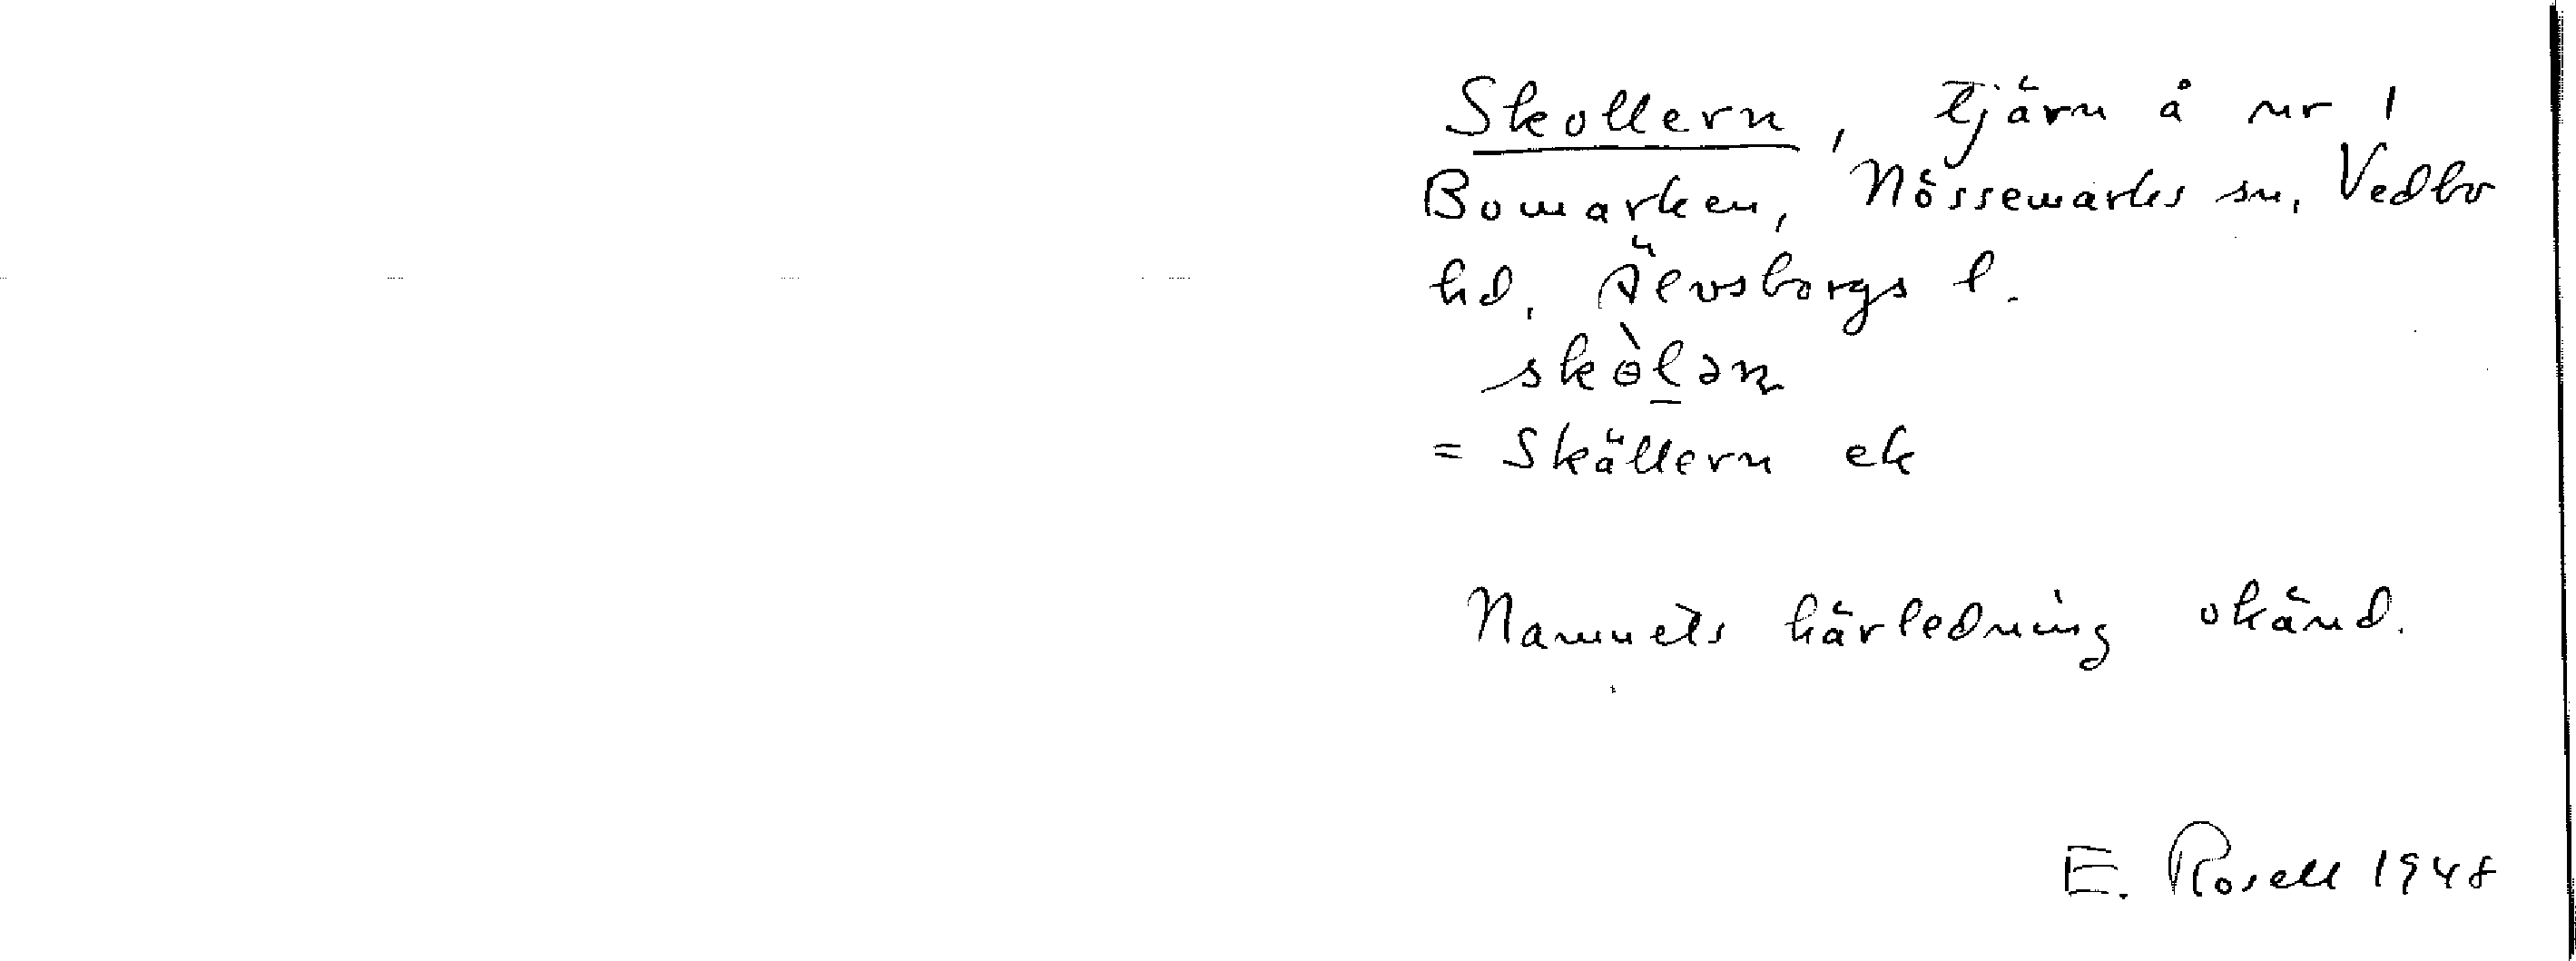 Skollern, tjärn å nr 1
Bomarken, Nössemarks sn, Vedbo
hd, Älvsborgs l.
skɵ̀l̠əɳ
= Skällern ek
Namnets härledning okänd.
E. Rosell 1948